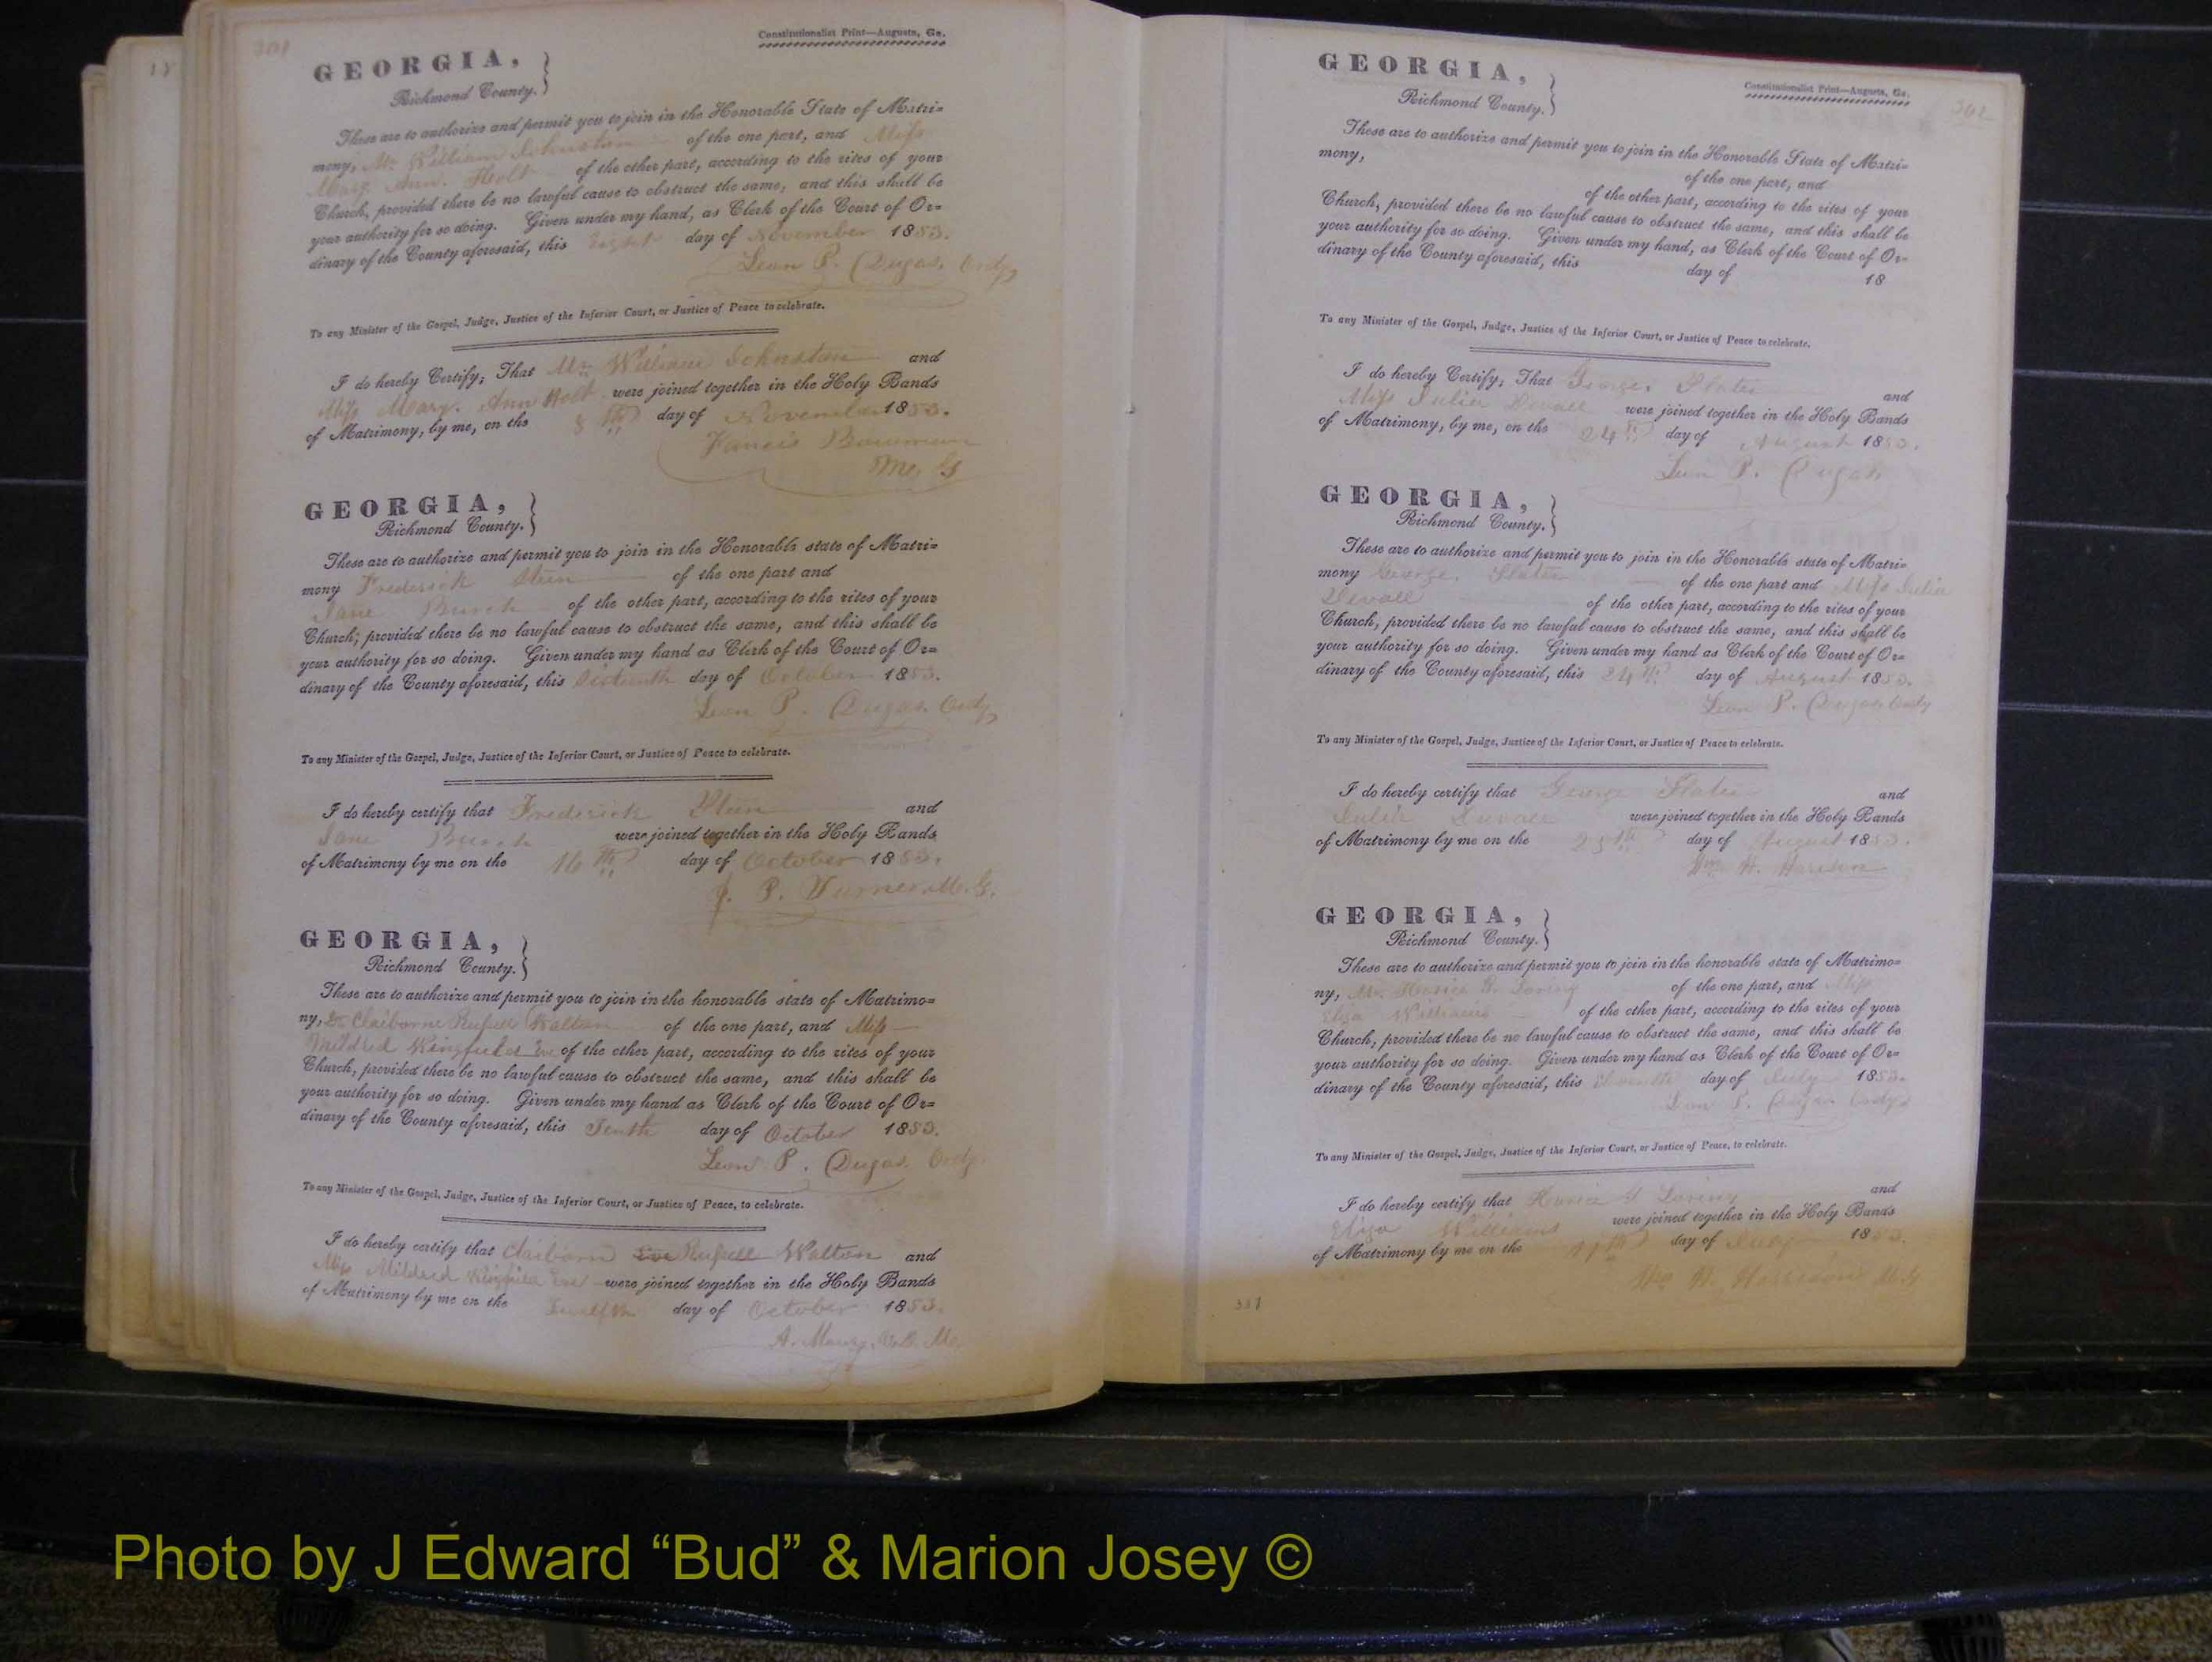 301
Constitutionalist Print—Augusta, Ga.
GEORGIA,
Richmond County.
These are to authorize and permit you to join in the Honorable State of Matri=
mony, Mr. William Johnston of the one part, and Miss
Mary. Ann. Holt of the other part, according to the rites of your
Church, provided there be no lawful cause to obstruct the same, and this shall be
your authority for so doing. Given under my hand, as Clerk of the Court of Or=
dinary of the County aforesaid, this Eighth day of November 1853.
Leon P. Dugas, Ordy,
To any Minister of the Gospel, Judge, Justice of the Inferior Court, or Justice of Peace to celebrate.
I do hereby Certify; That Mr. William Johnston and
Miss Mary. Ann Holt were joined together in the Holy Bands
of Matrimony, by me, on the 8th day of November 1853.
Francis Bowman
M. G
GEORGIA,
Richmond County.
These are to authorize and permit you to join in the Honorable state of Matri=
mony Frederick Stein of the one part and
Jane Burch of the other part, according to the rites of your
Church; provided there be no lawful cause to obstruct the same, and this shall be
your authority for so doing. Given under my hand as Clerk of the Court of Or=
dinary of the County aforesaid, this Sixteenth day of October 1853.
Leon P. Dugas. Ordy,
To any Minister of the Gospel, Judge, Justice of the Inferior Court, or Justice of Peace to celebrate.
I do hereby certify that Frederick and
Jane Burch were joined together in the Holy Bands
of Matrimony by me on the 16th day of October 1853.
J. P. Turner. M. G.
GEORGIA,
Richmond County.
These are to authorize and permit you to join in the honorable state of Matrimo=
ny, Dr. Claiborne Russell Walton of the one part, and Miss
Mildred Eve of the other part, according to the rites of your
Church, provided there be no lawful cause to obstruct the same, and this shall be
your authority for so doing. Given under my hand as Clerk of the Court of Or=
dinary of the County aforesaid, this Tenth day of October 1853.
Leon P. Dugas. Ordy.
To any Minister of the Gospel, Judge, Justice of the Inferior Court, or Justice of Peace, to celebrate.
I do hereby certify that Claiborn Eve Russell Walton and
Miss Mildred Eve were joined together in the Holy Bands
of Matrimony by me on the Twelfth day of October 1853.
A.
GEORGIA,
Constitutionalist Print—Augusta, Ga.
302
Richmond County.
These are to authorize and permit you to join in the Honorable State of Matri=
mony, of the one part, and
of the other part, according to the rites of your
Church, provided there be no lawful cause to obstruct the same, and this shall be
your authority for so doing. Given under my hand, as Clerk of the Court of Or=
dinary of the County aforesaid, this day of 18
To any Minister of the Gospel, Judge, Justice of the Inferior Court, or Justice of Peace to celebrate.
I do hereby Certify; That George Slater and
Miss Julia Devall were joined together in the Holy Bands
of Matrimony, by me, on the 24th day of August 1853.
Leon P. Dugas
GEORGIA,
Richmond County.
These are to authorize and permit you to join in the Honorable state of Matri=
mony George. Slater of the one part and Miss Julia
Devall of the other part, according to the rites of your
Church, provided there be no lawful cause to obstruct the same, and this shall be
your authority for so doing. Given under my hand as Clerk of the Court of Or=
dinary of the County aforesaid, this 24th day of August 1853.
Leon P. Dugas Ordy
To any Minister of the Gospel, Judge, Justice of the Inferior Court, or Justice of Peace to celebrate.
I do hereby certify that George Slater and
Julia were joined together in the Holy Bands
of Matrimony by me on the 25th day of August 1853.
Wm. H.
GEORGIA,
Richmond County.
These are to authorize and permit you to join in the honorable state of Matrimo=
ny, Mr. of the one part, and Miss
Eliza Williams of the other part, according to the rites of your
Church, provided there be no lawful cause to obstruct the same, and this shall be
your authority for so doing. Given under my hand as Clerk of the Court of Or=
dinary of the County aforesaid, this day of July 1853.
Leon P. Dugas Ordy.
To any Minister of the Gospel, Judge, Justice of the Inferior Court, or Justice of Peace, to celebrate.
I do hereby certify that and
Eliza Williams were joined together in the Holy Bands
of Matrimony by me on the day of July 1853.
Wm. H. M. G.
Photo by J Edward “Bud” & Marion Josey ©